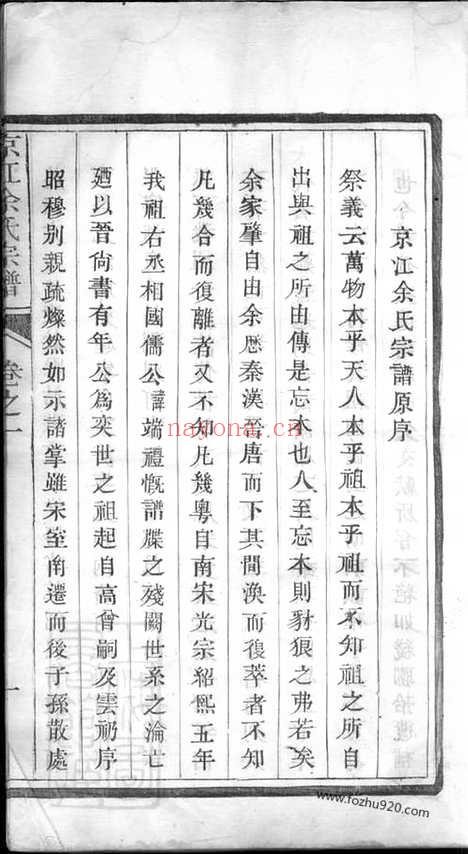 京江余氏宗譜原序
祭義云萬物本乎天人本乎祖本乎祖而不知祖之所自
出與祖之所由傳是忘本也人至忘本則豺狼之弗若矣
余家肇自由余歷秦漢晉唐而下其間渙而復萃者不知
凡幾合而復離者又不知凡幾粵自南宋光宗紹熙五年
我祖右丞相國儒公諱端禮慨譜牒之殘闕世系之淪亡
廼以晉尙書有年公爲奕世之祖起自高曾嗣及雲礽序
昭穆别親疏燦然如示諸掌雖宋室南遷而後子孫散處
京江余氏宗譜 卷之一 一
nayona.cn
www.fozhu920.com